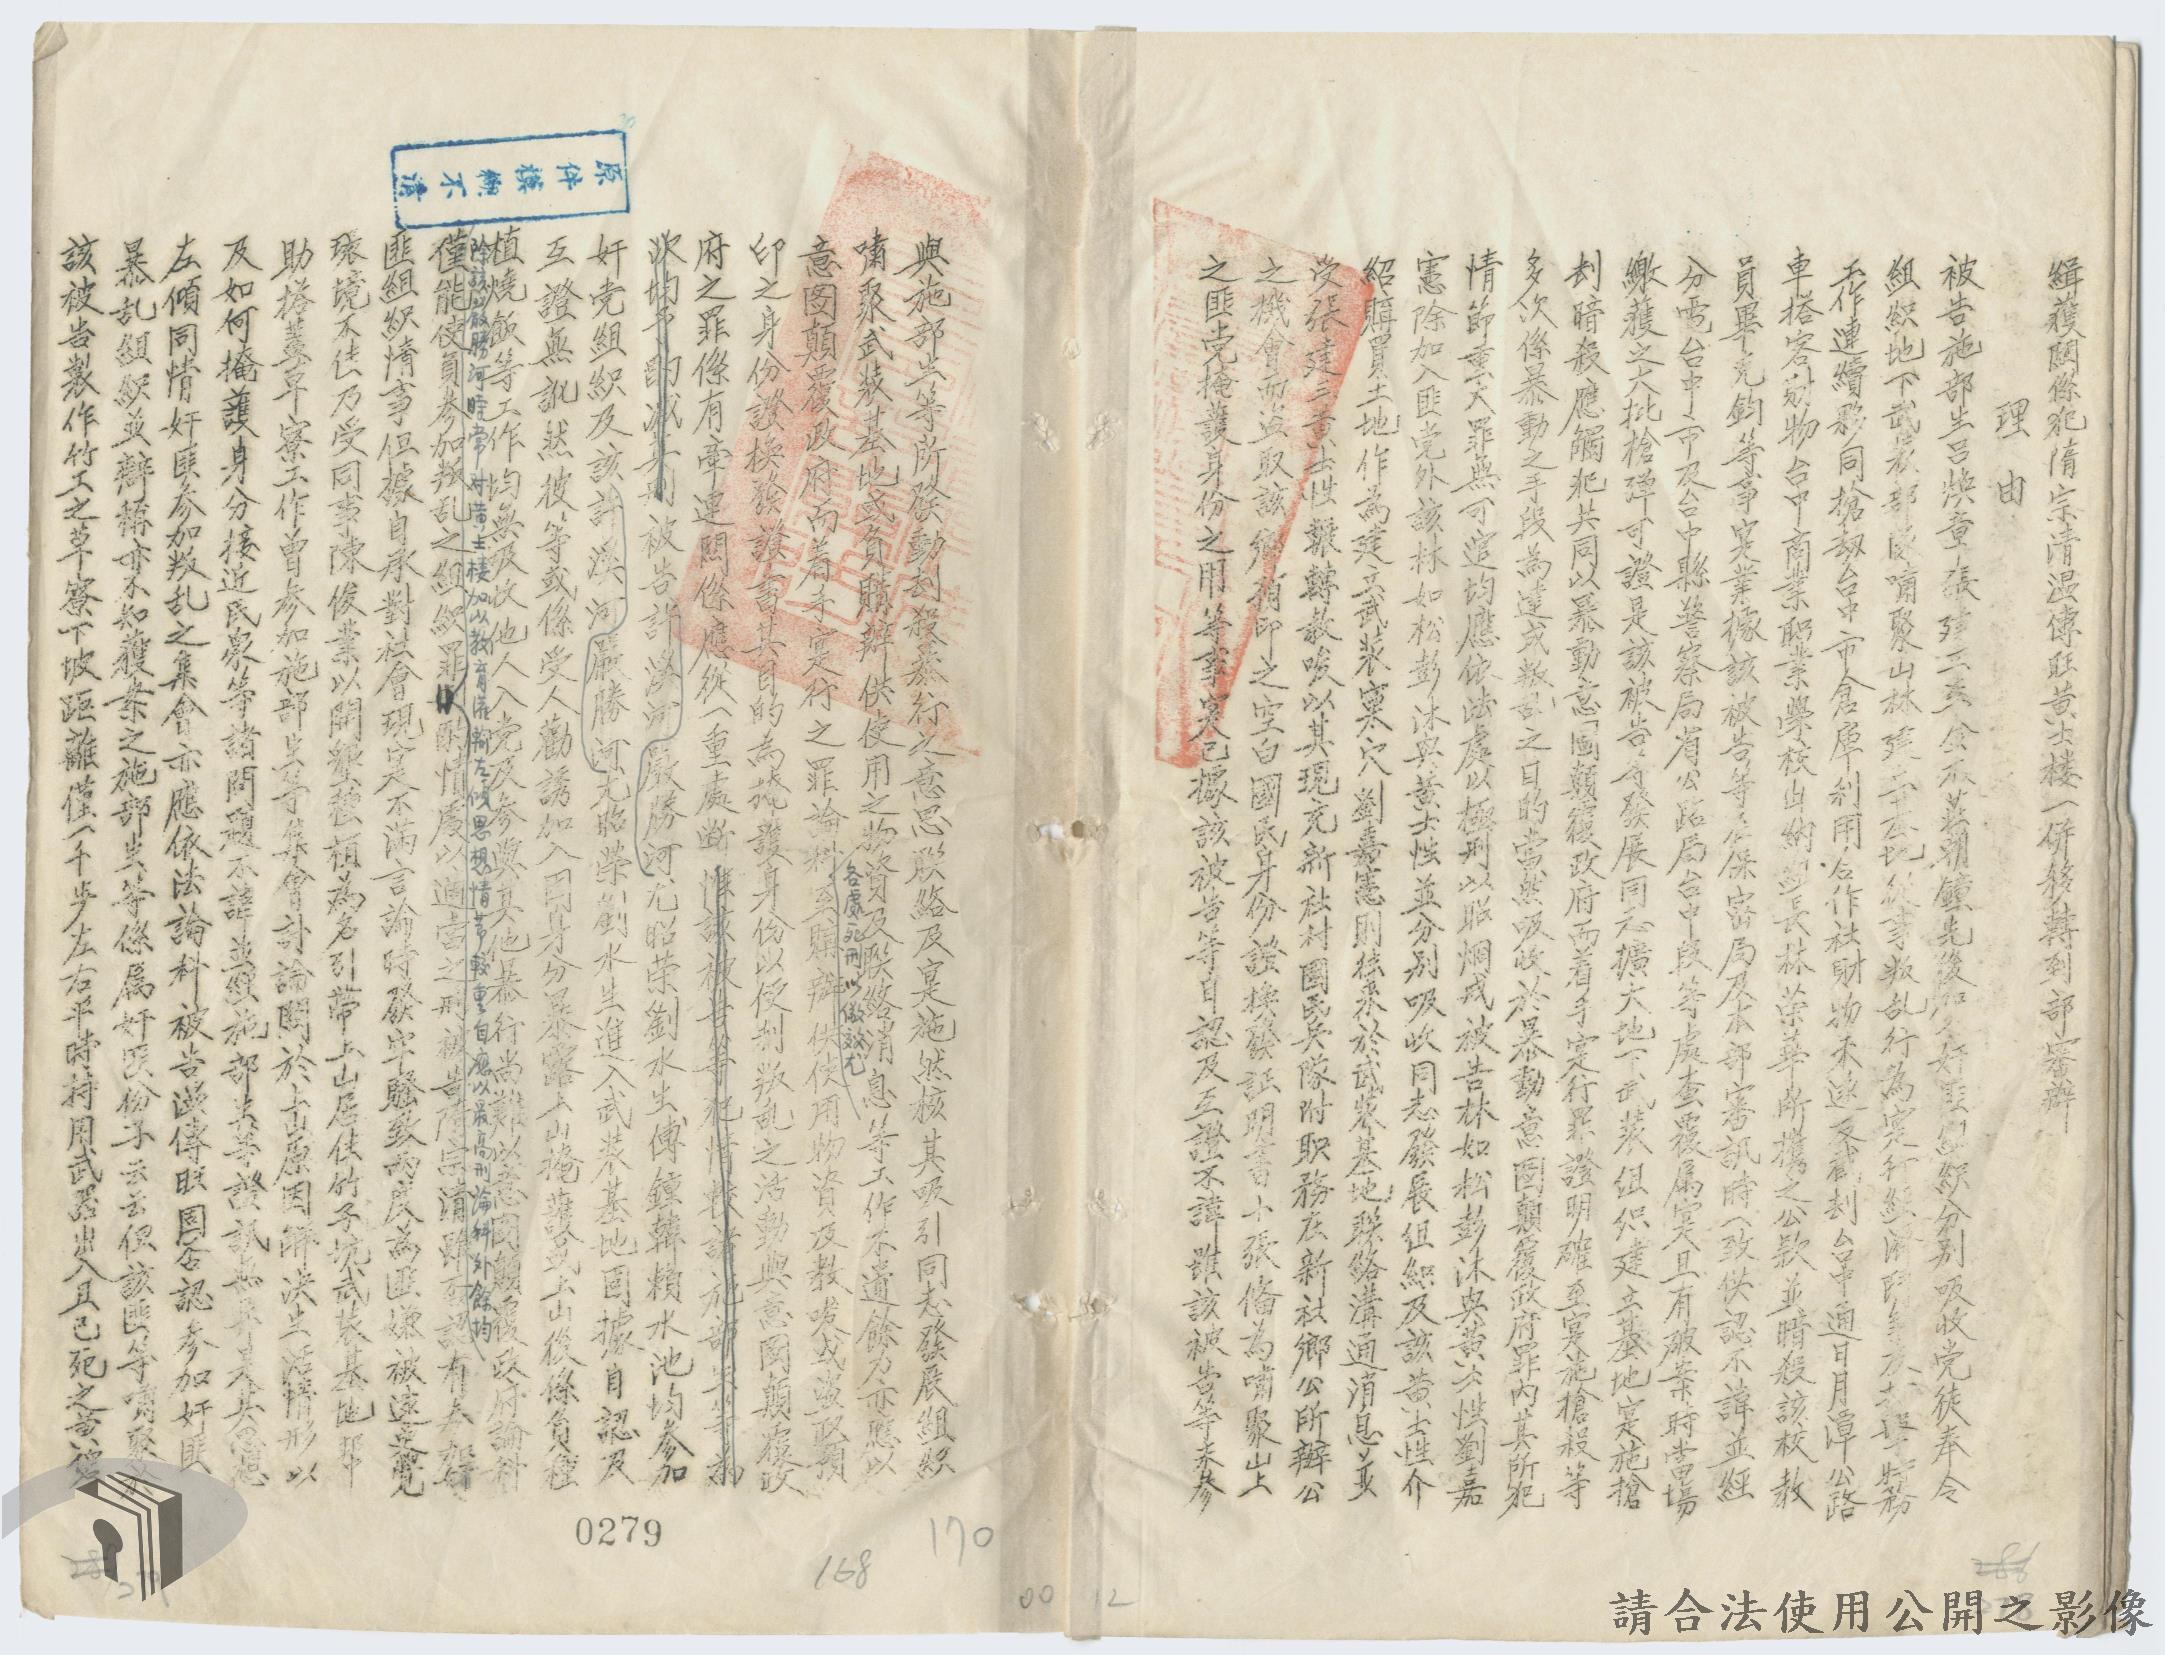 緝獲關係犯隋宗清溫傳旺黃士樓一併移轉到部審辦
理由
被告施部生呂煥章張建三 金 莊朝鐘先後加入奸匪組織分別吸收党徒奉令
組織地下武裝部隊嘯聚山林 從事叛乱行為實行經濟鬥爭 特務
工作連續夥同搶劫台中市倉庫利用合作社財物未遂及截刦台中通日月潭公路
車搭客財物台中商業職業學校出納組長林荣華所携之公欵並暗殺該校教
員 等事實業據該被告等在保密局及本部審訊時一致供認不諱並經
分電台中市及台中縣警察局省公路局台中段等處查覆屬实且有破案時當場
繳獲之大批槍彈可證是該被告等發展同志擴大地下武裝组织建立基地实施搶
刦暗殺應觸犯共同以暴動意圖顛覆政府而着手实行罪證明確至实施搶殺等
多次係暴動之手段為達成叛乱之目的當然吸收於暴動意圖顛覆政府罪內其所犯
情節重大罪無可逭均應依法處以極刑以昭烱戒被告林如松彭沐兴黃士性劉嘉
憲除加入匪党外該林如松彭沐兴黃士性並分別吸收同志發展组織及該黃士性介
紹購買土地作為建立武裝巢穴劉嘉憲則往來於武裝基地聯絡溝通消息並
受張建三黃士性輾轉教唆以其現充新社村國民兵隊附职務在新社鄉公所辦公
之機會而盜取該鄉預印之空白國民身份證換發証明書十張偹為嘯聚山上
之匪党掩護身份之用等事実已據該被告等自認及互證不諱雖該被告等未參
與施部生等所發動刦殺暴行之意思聯絡及实施然核其吸引同志發展組織
嘯聚武裝基地或負購辦供使用之物資及聯絡消息等工作不遺餘力亦應以
意圖顛覆政府而着手实行之罪論科至購辦供使用物資及教唆或盜取預
各處死刑以儆效尤
印之身份證換發證書其目的為掩護身份以便利叛乱之活動與意圖顛覆政
府之罪係有牽連關係應從一重處斷惟該被告等犯情較諸施部生等為
次均予酌减其刑被告許漢河嚴勝河尤昭荣劉水生傅鐘韓賴水池均參加
奸党組織及該許漢河嚴勝河尤昭榮劉水生進入武裝基地固據自認及
互證無訛然彼等或係受人勸誘加入因身分暴露上山掩護或上山後係負種
植燒飯等工作均無吸收他人入党及參與其他暴行尚難以意圖顛覆政府論科
除該 嚴勝河時常對黃士樓加以教育灌輸左傾思想情节較重自應以最高刑論科外餘均
僅能使負參加叛乱之組織罪 酌情處以適當之刑被告隋宗清雖否認有參加奸
匪組織情事但據自承對社會現実不滿言論時發牢騷致两度為匪嫌被逮並覺
環境不佳乃受同事陳俊業以開墾種植為名引帶上山居住竹子坑武裝基地 幫
助搭蓋草寮工作曾參加施部生等集會討論關於上山原因解決生活情形以
及如何掩護身分接近民眾等諸問題不諱並經施部生等證訊無異是其思想
左傾同情奸匪参加叛乱之集會亦應依法論科被告溫傳旺固否認參加奸匪
暴乱組織並辯稱亦不知獲案之施部生等係屬奸匪份子云云但該匪等嘯聚於
該被告製作竹工之草寮下坡距離僅一千步左右平時持用武器出入且已死之黃
原件模糊不清
0279
168
170
00 12
請合法使用公開之影像